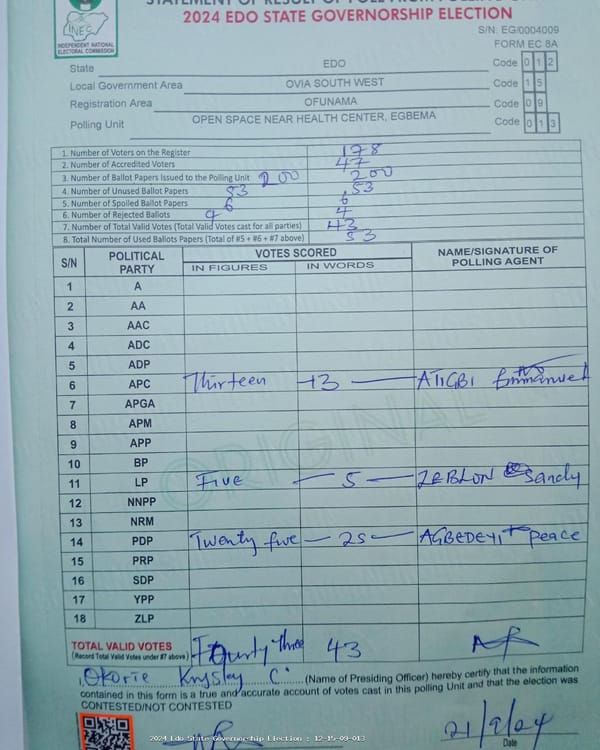 2024 EDO STATE GOVERNORSHIP ELECTION
INEC
INDEPENDENT NATIONAL ELECTORAL COMMISSION
S/N. EG/0004009
FORM EC 8A
State EDO Code 0 1 2
Local Government Area OVIA SOUTH WEST Code 1 5
Registration Area OFUNAMA Code 0 9
Polling Unit OPEN SPACE NEAR HEALTH CENTER, EGBEMA Code 0 1 3
1. Number of Voters on the Register 178
2. Number of Accredited Voters 47
3. Number of Ballot Papers Issued to the Polling Unit 200 200
4. Number of Unused Ballot Papers 53 53
5. Number of Spoiled Ballot Papers 6 6
6. Number of Rejected Ballots 4 4
7. Number of Total Valid Votes (Total Valid Votes cast for all parties) 43
8. Total Number of Used Ballots Papers (Total of #5 + #6 + #7 above) 53
S/N POLITICAL PARTY VOTES SCORED NAME/SIGNATURE OF POLLING AGENT
IN FIGURES IN WORDS
1 A
2 AA
3 AAC
4 ADC
5 ADP
6 APC Thirteen 13 ATIGBI Emmanuel
7 APGA
8 APM
9 APP
10 BP
11 LP Five 5 ZEBLON Sandy
12 NNPP
13 NRM
14 PDP Twenty five 25 AGBEDEYI Peace
15 PRP
16 SDP
17 YPP
18 ZLP
ORIGINAL
TOTAL VALID VOTES Fourty three 43
(Record Total Valid Votes under #7 above)
I, Okorie Kingsley C. (Name of Presiding Officer) hereby certify that the information
contained in this form is a true and accurate account of votes cast in this polling Unit and that the election was
CONTESTED/NOT CONTESTED
21/9/24
Date
2024 Edo State Governorship Election : 12-15-09-013